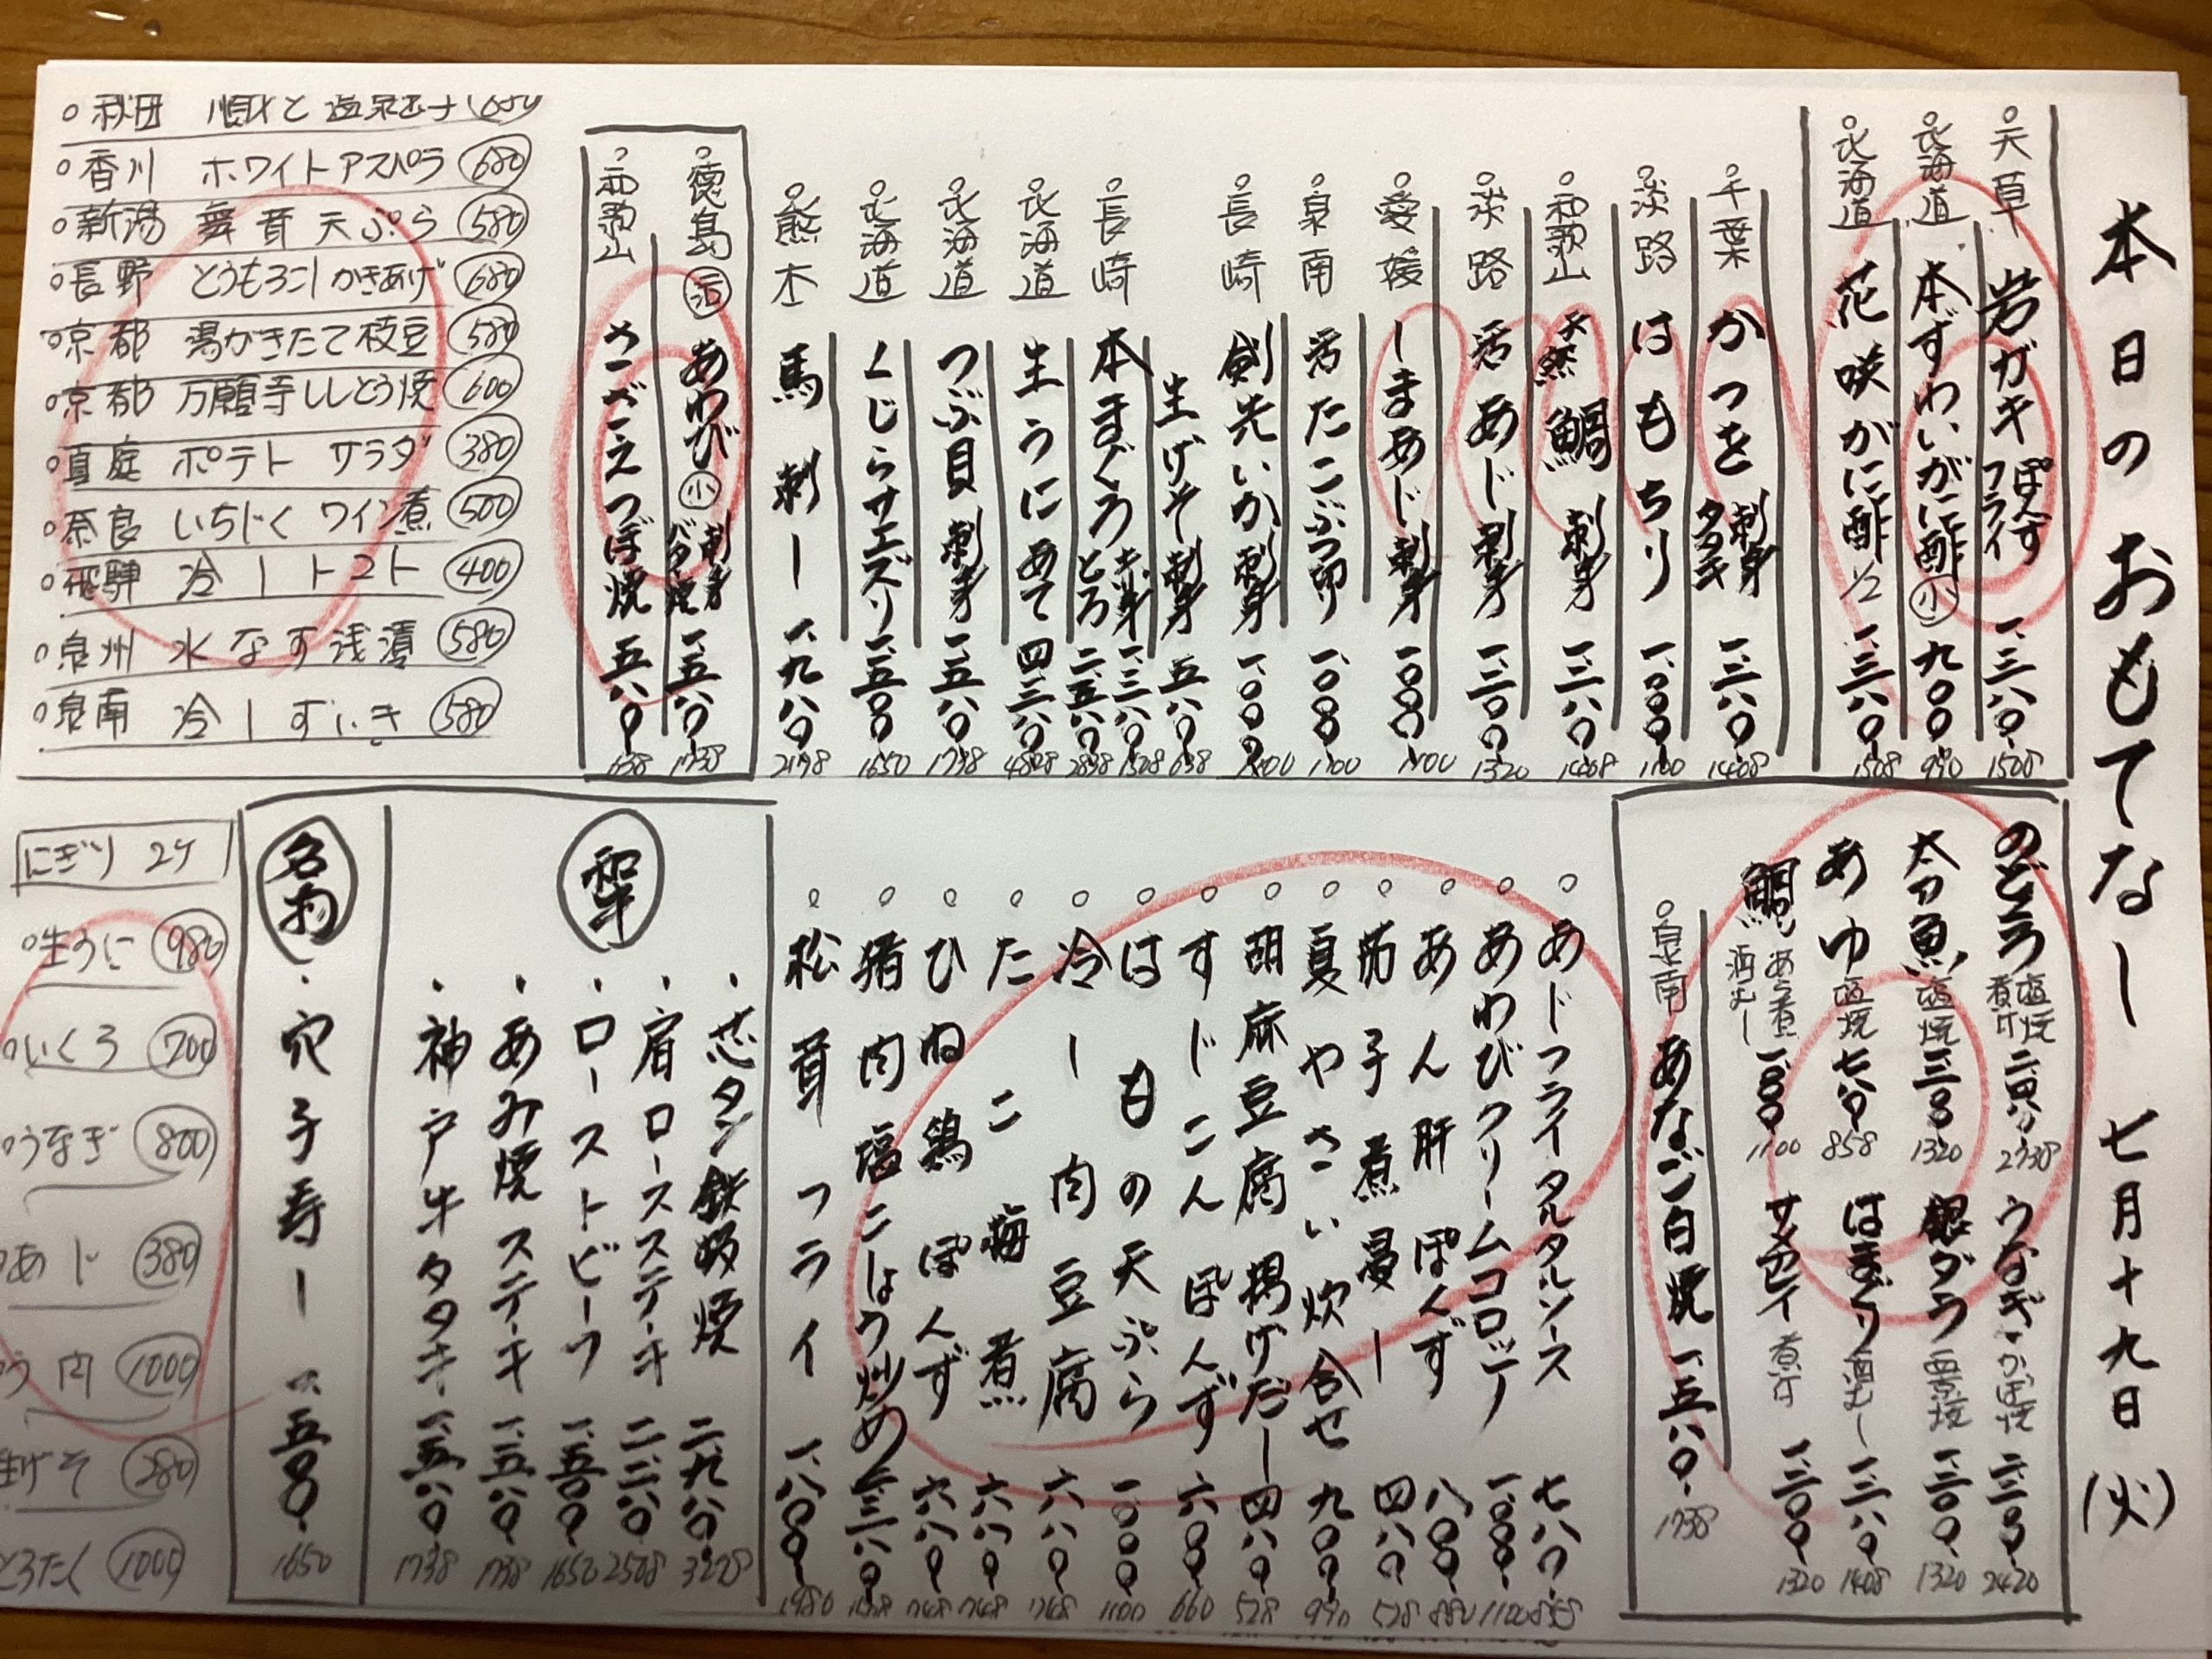 本日のおもてなし 七月十九日(火)
天草 岩ガキ ぽんず フライ 一、三八〇 1508
北海道 本ずわいがに酢 小 九〇〇 990
北海道 花咲がに酢 1/2 一、三八〇 1508
千葉 かつを 刺身 タタキ 一、二八〇 1408
淡路 はもちり 一、〇〇〇 1100
和歌山 天然鯛 刺身 一、二八〇 1408
淡路 活あじ 刺身 一、二〇〇 1320
愛媛 しまあじ 刺身 一、〇〇〇 1100
泉南 活たこぶつ切り 一、〇〇〇 1100
長崎 剣先いか 刺身 一、〇〇〇 1100
生げそ 刺身 五八〇 638
長崎 本まぐろ 赤身 一、三八〇 1528 とろ 二、五八〇 2838
北海道 生うに あて 四、三八〇 4808
北海道 つぶ貝 刺身 一、五八〇 1738
北海道 くじらサエズリ 一、五〇〇 1650
熊本 馬刺し 一、九八〇 2178
徳島 活 あわび 小 刺身 バタ焼 一、五八〇 1738
和歌山 さざえつぼ焼 五八〇 638
秋田 順才と温泉玉子 680
香川 ホワイトアスパラ 680
新潟 舞茸天ぷら 580
長野 とうもろこしかきあげ 680
京都 湯がきたて枝豆 580
京都 万願寺ししとう焼 600
真庭 ポテトサラダ 380
奈良 いちじくワイン煮 500
飛騨 冷しトマト 400
泉州 水なす浅漬 580
泉南 冷しずいき 580
のどぐろ 塩焼 煮付 2738
太刀魚 塩焼 一、二〇〇 1320
あゆ 塩焼 七八〇 858
鯛 あら煮 酒むし 一、〇〇〇 1100
うなぎ かば焼 二、二〇〇 2420
銀ダラ 西京焼 一、二〇〇 1320
はまぐり 酒むし 一、二八〇 1408
サメカレイ 煮付 一、二〇〇 1320
泉南 あなご白焼 一、五八〇 1738
あじフライタルタルソース 七八〇 858
あわびクリームコロッケ 一、〇〇〇 1100
あん肝ぽんず 八〇〇 880
茄子煮浸し 四八〇 528
夏やさい炊合せ 九〇〇 990
胡麻豆腐揚げだし 四八〇 528
すじこんぽんず 六〇〇 660
はもの天ぷら 一、〇〇〇 1100
冷し肉豆腐 六八〇 748
たこ梅煮 六八〇 748
ひね鶏ぽんず 六八〇 748
猪肉塩こしょう炒め
松茸フライ 一、八〇〇 1980
和牛
芯タン鉄板焼 二、九八〇 3278
肩ロースステーキ 二、二八〇 2508
ローストビーフ 一、五〇〇 1650
あみ焼ステーキ 一、五八〇 1738
神戸牛タタキ 一、五八〇 1738
名物
穴子寿し 一、五〇〇 1650
にぎり 2ケ
生うに 980
いくら 700
うなぎ 800
あじ 380
肉 1000
生げそ 280
とろたく 1000